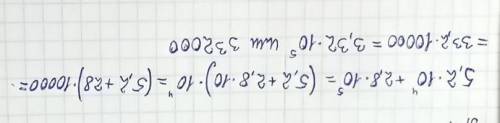 5,2 · 10⁴ + 2,8 · 10⁵ = (5,2 + 2,8 · 10) · 10⁴ = (5,2 + 28) · 10000 =
= 33,2 · 10000 = 3,32 · 10⁵ или 332000